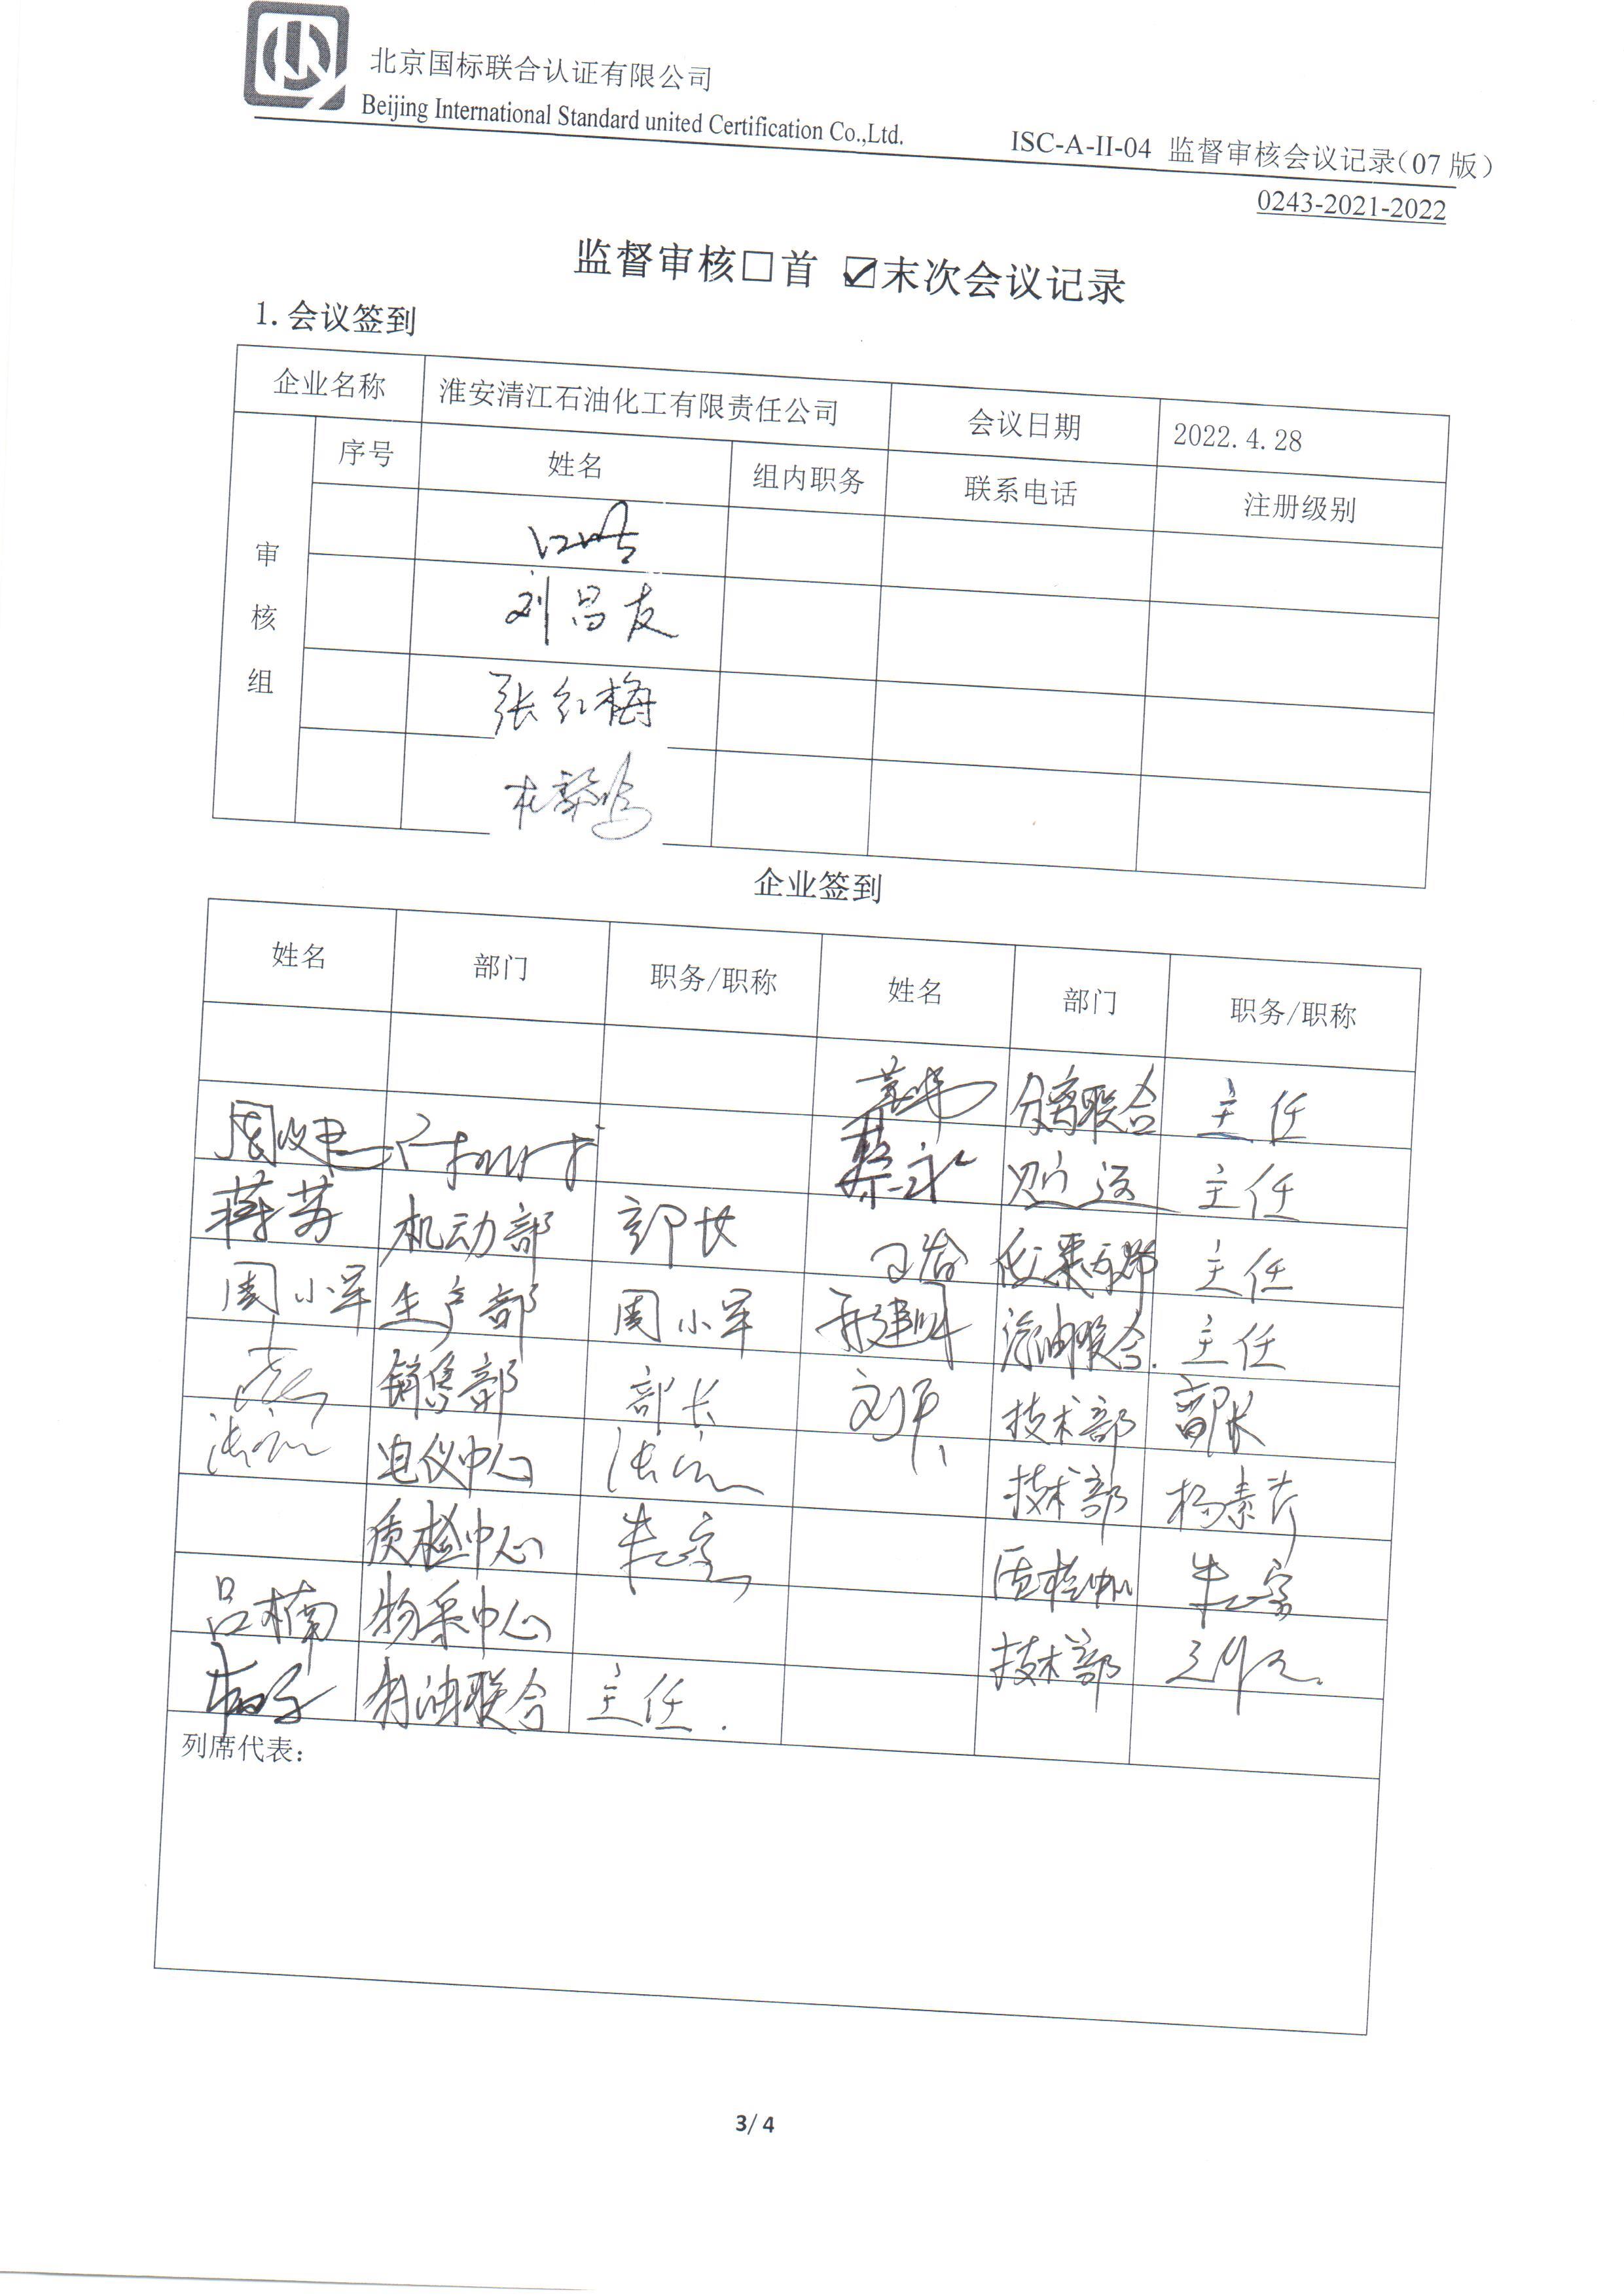 北京国标联合认证有限公司
Beijing International Standard united Certification Co.,Ltd.
ISC-A-II-04 监督审核会议记录(07 版)
0243-2021-2022
监督审核□首 ☑末次会议记录
1.会议签到
企业名称 淮安清江石油化工有限责任公司 会议日期 2022.4.28
审核组 序号 姓名 组内职务 联系电话 注册级别
刘昌友
张红梅
企业签到
姓名 部门 职务/职称 姓名 部门 职务/职称
分离联合 主任
蔡永 贮运 主任
蒋芳 机动部 部长 主任
周小军 生产部 周小军 汽油联合 主任
销售部 部长 刘平 技术部 部长
电仪中心 技术部 杨素芹
质检中心 质检中心
吕楠 物采中心 技术部
主任
列席代表:
3/4